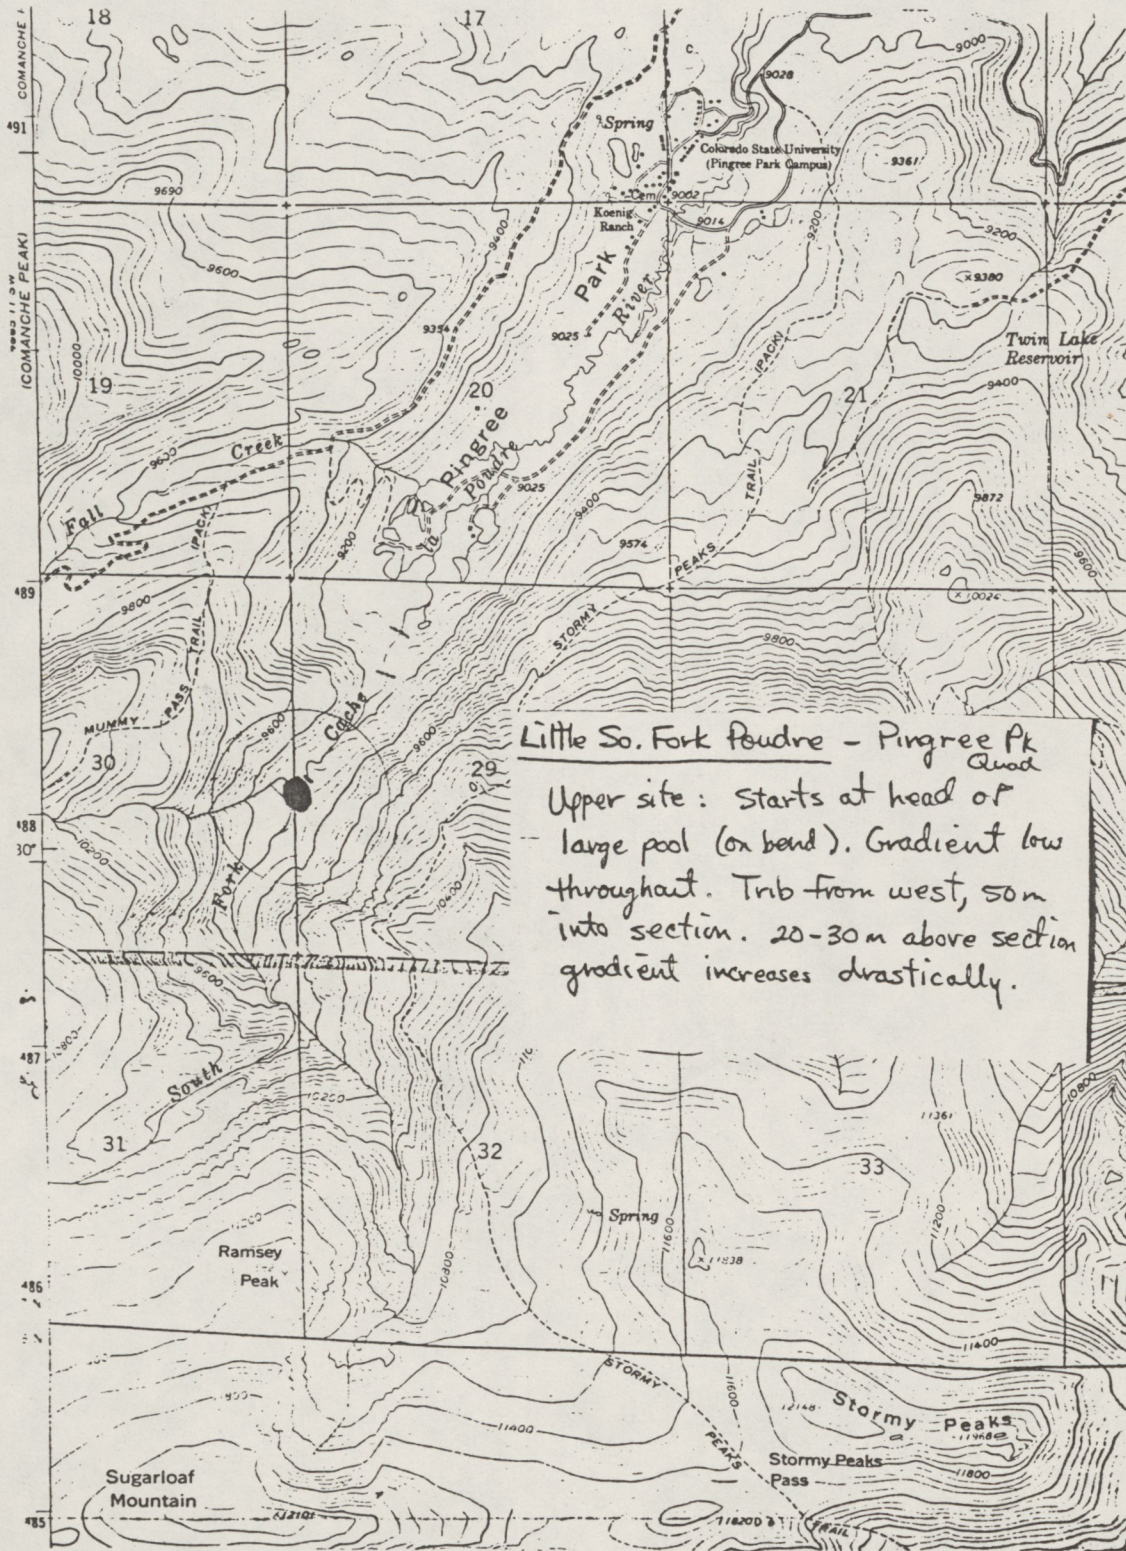 18
17
COMANCHE
9000
9028
491
Spring
Colorado State University
(Pingree Park Campus)
9361
9690
Cem
9002
Koenig
Ranch
9014
9200
9400
9200
(COMANCHE PEAK)
9600
Park
River
×9380
9354
9025
Twin Lake
Reservoir
(PACK)
10000
19
20
21
9400
Creek
Pingree
9600
Poudre
TRAIL
9025
9872
Fall
la
(PACK)
9400
9200
9574
PEAKS
9600
489
×10026
9800
TRAIL
STORMY
9800
PASS
MUMMY
Cache
9600
9600
30
29
Little So. Fork Poudre - Pingree Pk
Quad
Upper site: Starts at head of
large pool (on bend). Gradient low
throughout. Trib from west, 50m
into section. 20-30 m above section
gradient increases drastically.
488
30"
10200
Fork
10400
9600
487
10800
South
10200
10800
11361
31
32
33
11200
Spring
11600
Ramsey
Peak
×11838
10800
486
11400
STORMY
11600
12148
Stormy Peaks
11400
PEAKS
Stormy Peaks
Pass
11800
Sugarloaf
Mountain
×12101
485
TRAIL